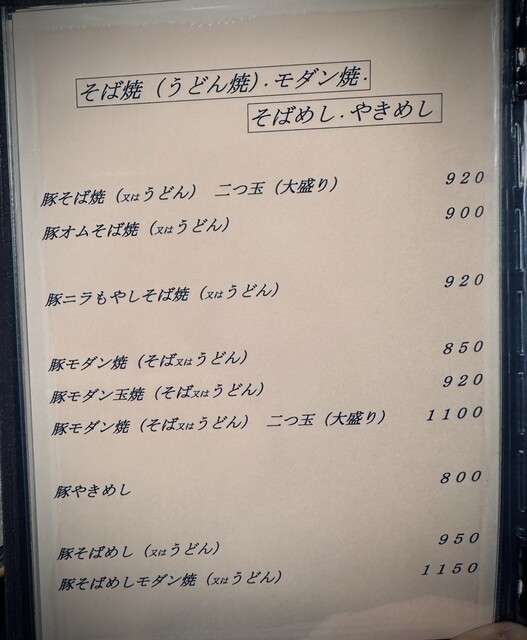 そば焼（うどん焼）．モダン焼．
そばめし．やきめし
豚そば焼（又はうどん）　二つ玉（大盛り）　９２０
豚オムそば焼（又はうどん）　９００
豚ニラもやしそば焼（又はうどん）　９２０
豚モダン焼（そば又はうどん）　８５０
豚モダン玉焼（そば又はうどん）　９２０
豚モダン焼（そば又はうどん）　二つ玉（大盛り）　１１００
豚やきめし　８００
豚そばめし（又はうどん）　９５０
豚そばめしモダン焼（又はうどん）　１１５０